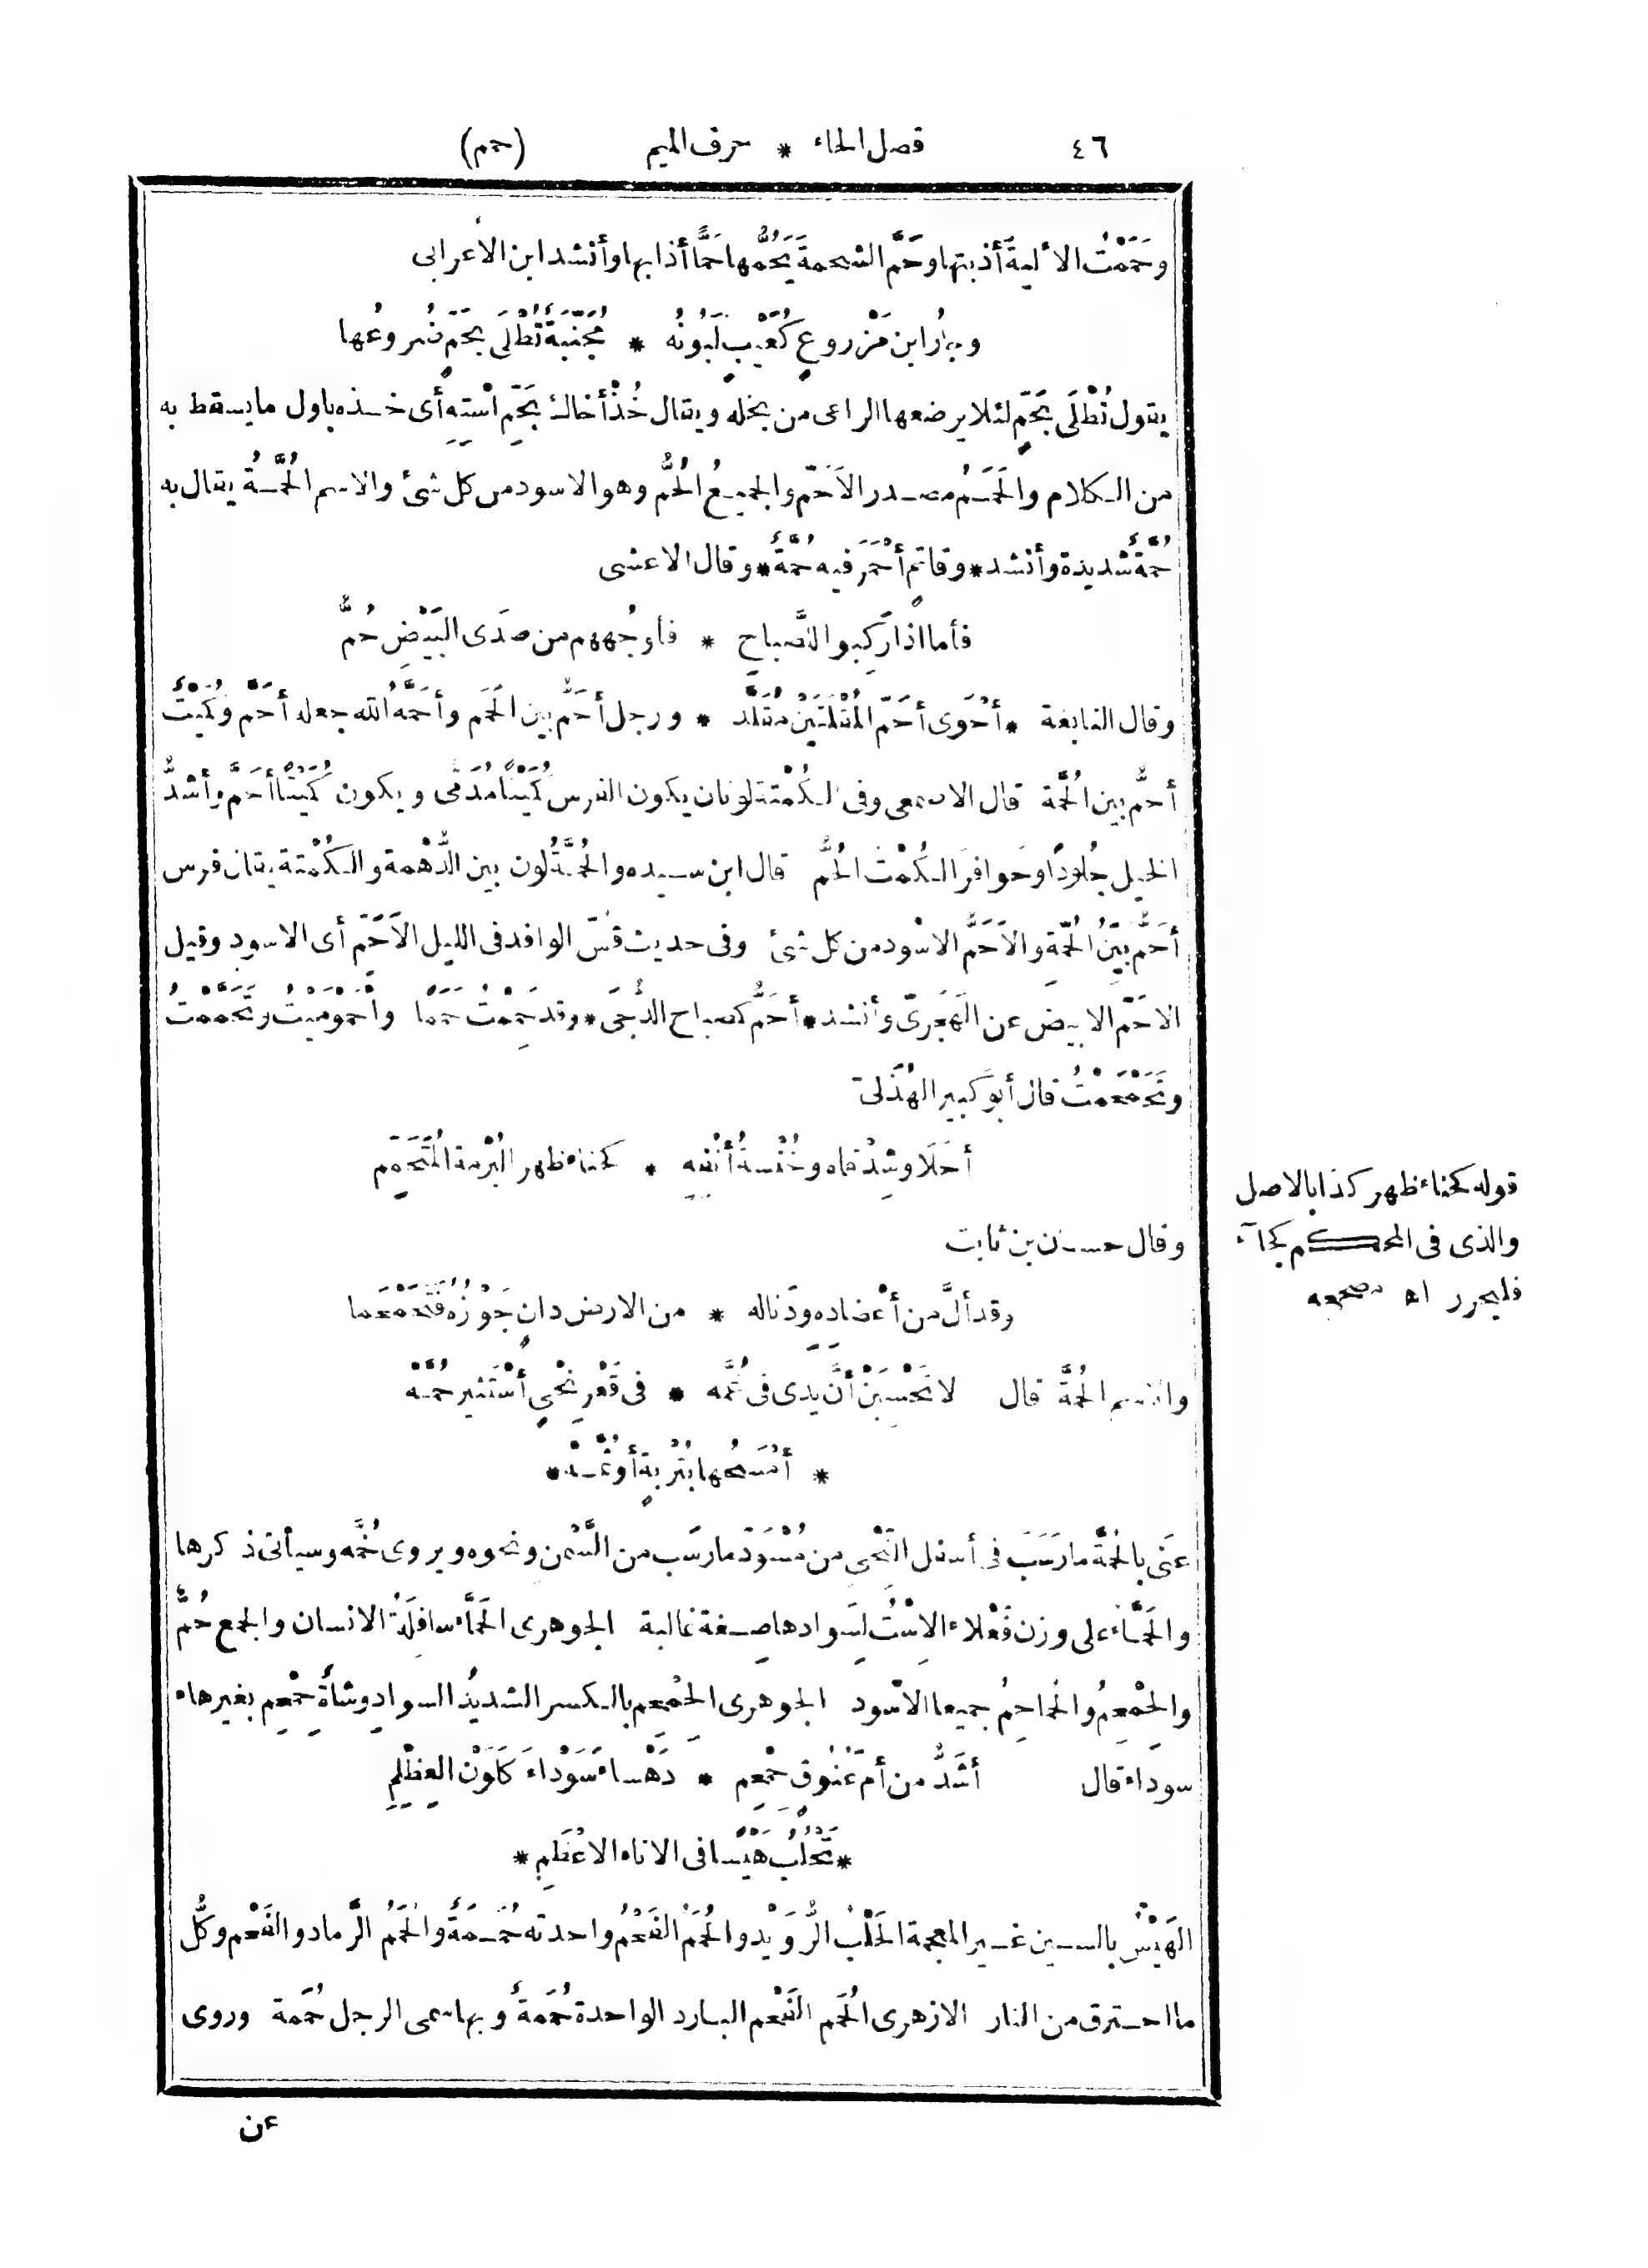 ٤٦ فصل الحاء * حرف الميم (حمم)
وحَمَمْتُ الألْيةَ أذبتها وحَمَّ الشحمةَ يَحُمُّها حَمًّا أذابها وأنشد ابن الأعرابى
وجارُ ابن مَزْروعٍ كُعَيْبٍ لَبُونُه * مُجَنَّبَةٌ تُطْلَى بحَمٍّ ضُروعُها
يقول تُطْلَى بحَمٍّ لئلا يرضعها الراعى من بخله ويقال خُذْ أخاك بحَمِّ اسْتِهِ أى خذه باول ما يسقط به
من الكلام والحَمَمُ مصدر الاَحَمّ والجميعُ الحُمُّ وهو الاسود من كل شئ والاسم الحُمَّةُ يقال به
حُمَّةٌ شديدة وأنشد * وقاتمٍ أحْمَرَ فيه حُمَّةٌ * وقال الاعشى
فأما اذا رَكِبوا للصَّباحِ * فأوجُههم من صَدَى البَيْضِ حُمُّ
وقال النابغة * أحْوَى أحَمّ المُقْلَتَيْن مُقَلَّد * ورجل أحَمُّ بين الحَمَم وأحَمَّه اللهُ جعله أحَمَّ وكُمَيْتٌ
أحمُّ بين الحُمَّة قال الاصمعى وفى الكُمْتة لونان يكون الفرس كُمَيْتًا مُدَمًّى ويكون كُمَيْتًا أحَمَّ وأشدُّ
الخيل جُلودًا وحَوافرَ الكُمْتُ الحُمُّ قال ابن سيده والحُمَّةُ لون بين الدُّهْمة والكُمْتة يقال فرس
أحَمُّ بَيِّنُ الحُمّة والاَحَمُّ الاسْود من كل شئ وفى حديث قُسّ الوافد فى الليل الاَحَمّ أى الاسود وقيل
الاحَمّ الابيض عن الهَجَرىّ وأنشد * أحَمُّ كمصباح الدُّجَى * وقد حَمِمْتُ حَمَمًا واحْمَوْمَيْتُ وتَحَمَّمْتُ
وتَحَمْحَمْتُ قال أبو كَبير الهُذَلىّ
أحَلَا وشِدْقاه وخُنْسةُ أنْفِه * كحناء ظهر البُرْمة المُتَحَمِّم
وقال حسان بن ثابت
وقد ألَّ من أعْضادِه ودَنا له * من الارض دانٍ جَوْزُه فتَحَمْحَما
والاسم الحُمَّة قال لا تَحْسِبَنْ أنَّ يدى فى غُمَّه * فى قَعْرِ نِحْيٍ أسْتَثير حُمَّهْ
* أمْسَحُها بتُرْبةٍ أو ثُمَّهْ *
عَنَى بالحُمَّة ما رَسَبَ فى أسفل النِّحْىِ من مُسْوَدّ ما رَسَب من السَّمْن ونحوه ويروى خُمَّه وسيأتى ذكرها
والحَمَّاءُ على وزن فَعْلاء الاِسْتُ لِسَوادها صِفة غالبة الجوهرى الحَمَّاء سافِلةُ الانسان والجمع حُمٌّ
والحِمْحِمُ والحُماحِمُ جميعا الاسْود الجوهرى الحِمْحِم بالكسر الشديدُ السوادِ وشاةٌ حِمْحِم بغير هاء
سوداء قال أشَدُّ من أمّ عُنُوقٍ حِمْحِم * دَهْساء سَوْداءَ كَلَوْن العِظْلِمِ
* تَحْلُبُ هَيْسًا فى الاناء الاعْظَمِ *
الهَيْسُ بالسين غير المعجمة الحَلْبُ الرُّوَيْد والحُمَمُ الفَحْمُ واحدته حُمَمَةٌ والحُمَمُ الرَّماد والفَحْم وكُلُّ
ما احترق من النار الازهرى الحُمَم الفَحْم البارد الواحدة حُمَمةٌ وبها سمى الرجل حُمَمة وروى
عن
قوله كحناء ظهر كذا بالاصل
والذى فى المحكم كجآء
فليحرر اه مصححه